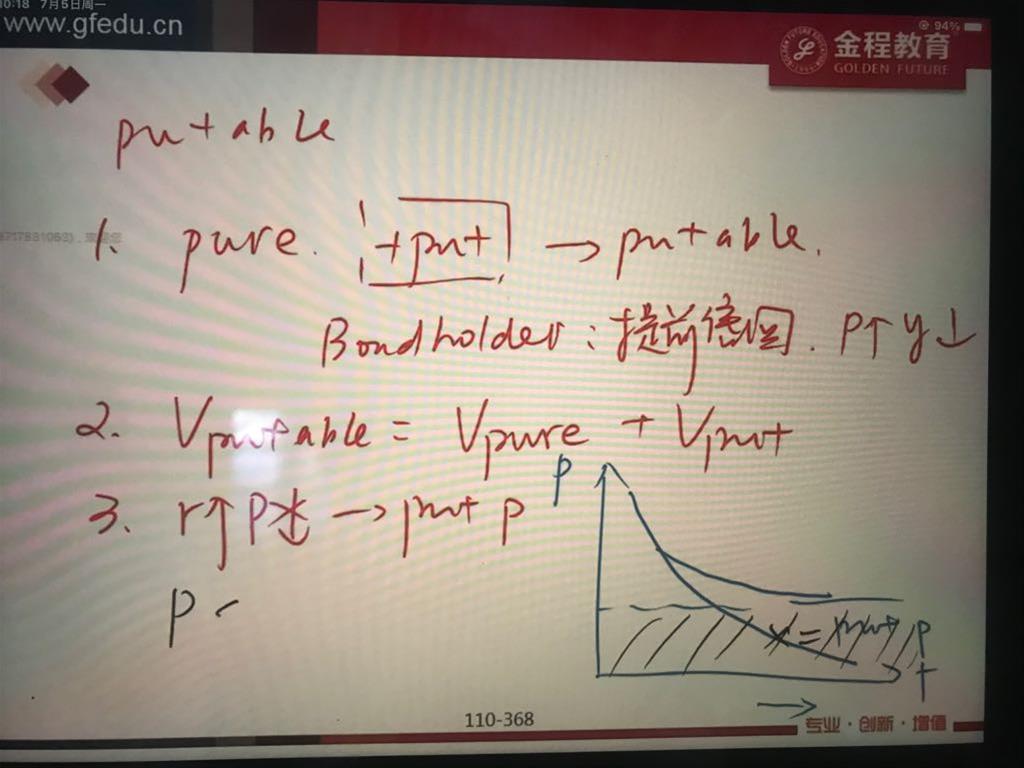 10:18 7月5日周一
94%
www.gfedu.cn
金程教育
GOLDEN FUTURE
putable
1. pure. +put → putable.
Bondholder: 提前 回. P↑ y↓
2. Vputable = Vpure + Vput
3. r↑ P → put p
P <
P
X = X put P
110-368
专业·创新·增值